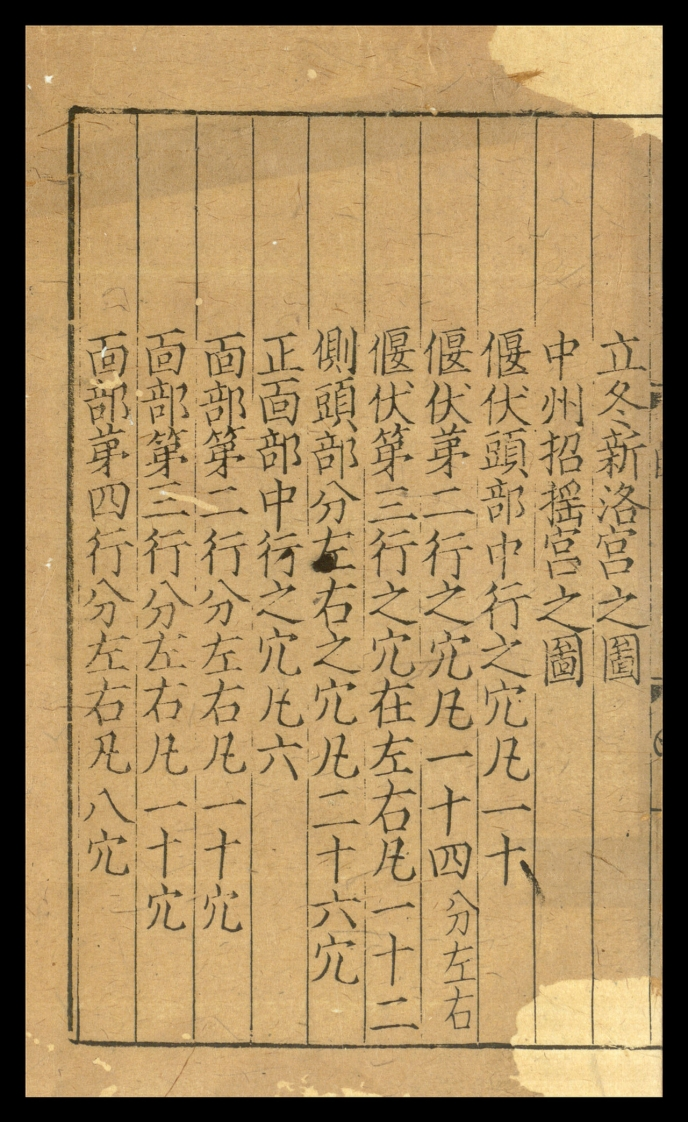 立冬新洛宮之圖
中州招搖宮之圖
偃伏頭部中行之穴凡一十
偃伏苐二行之穴凡一十四分左右
偃伏第三行之穴在左右凡一十二
側頭部分左右之穴凡二十六穴
正面部中行之穴凡六
面部第二行分左右凡一十穴
面部第三行分左右凡一十穴
面部苐四行分左右凡八穴